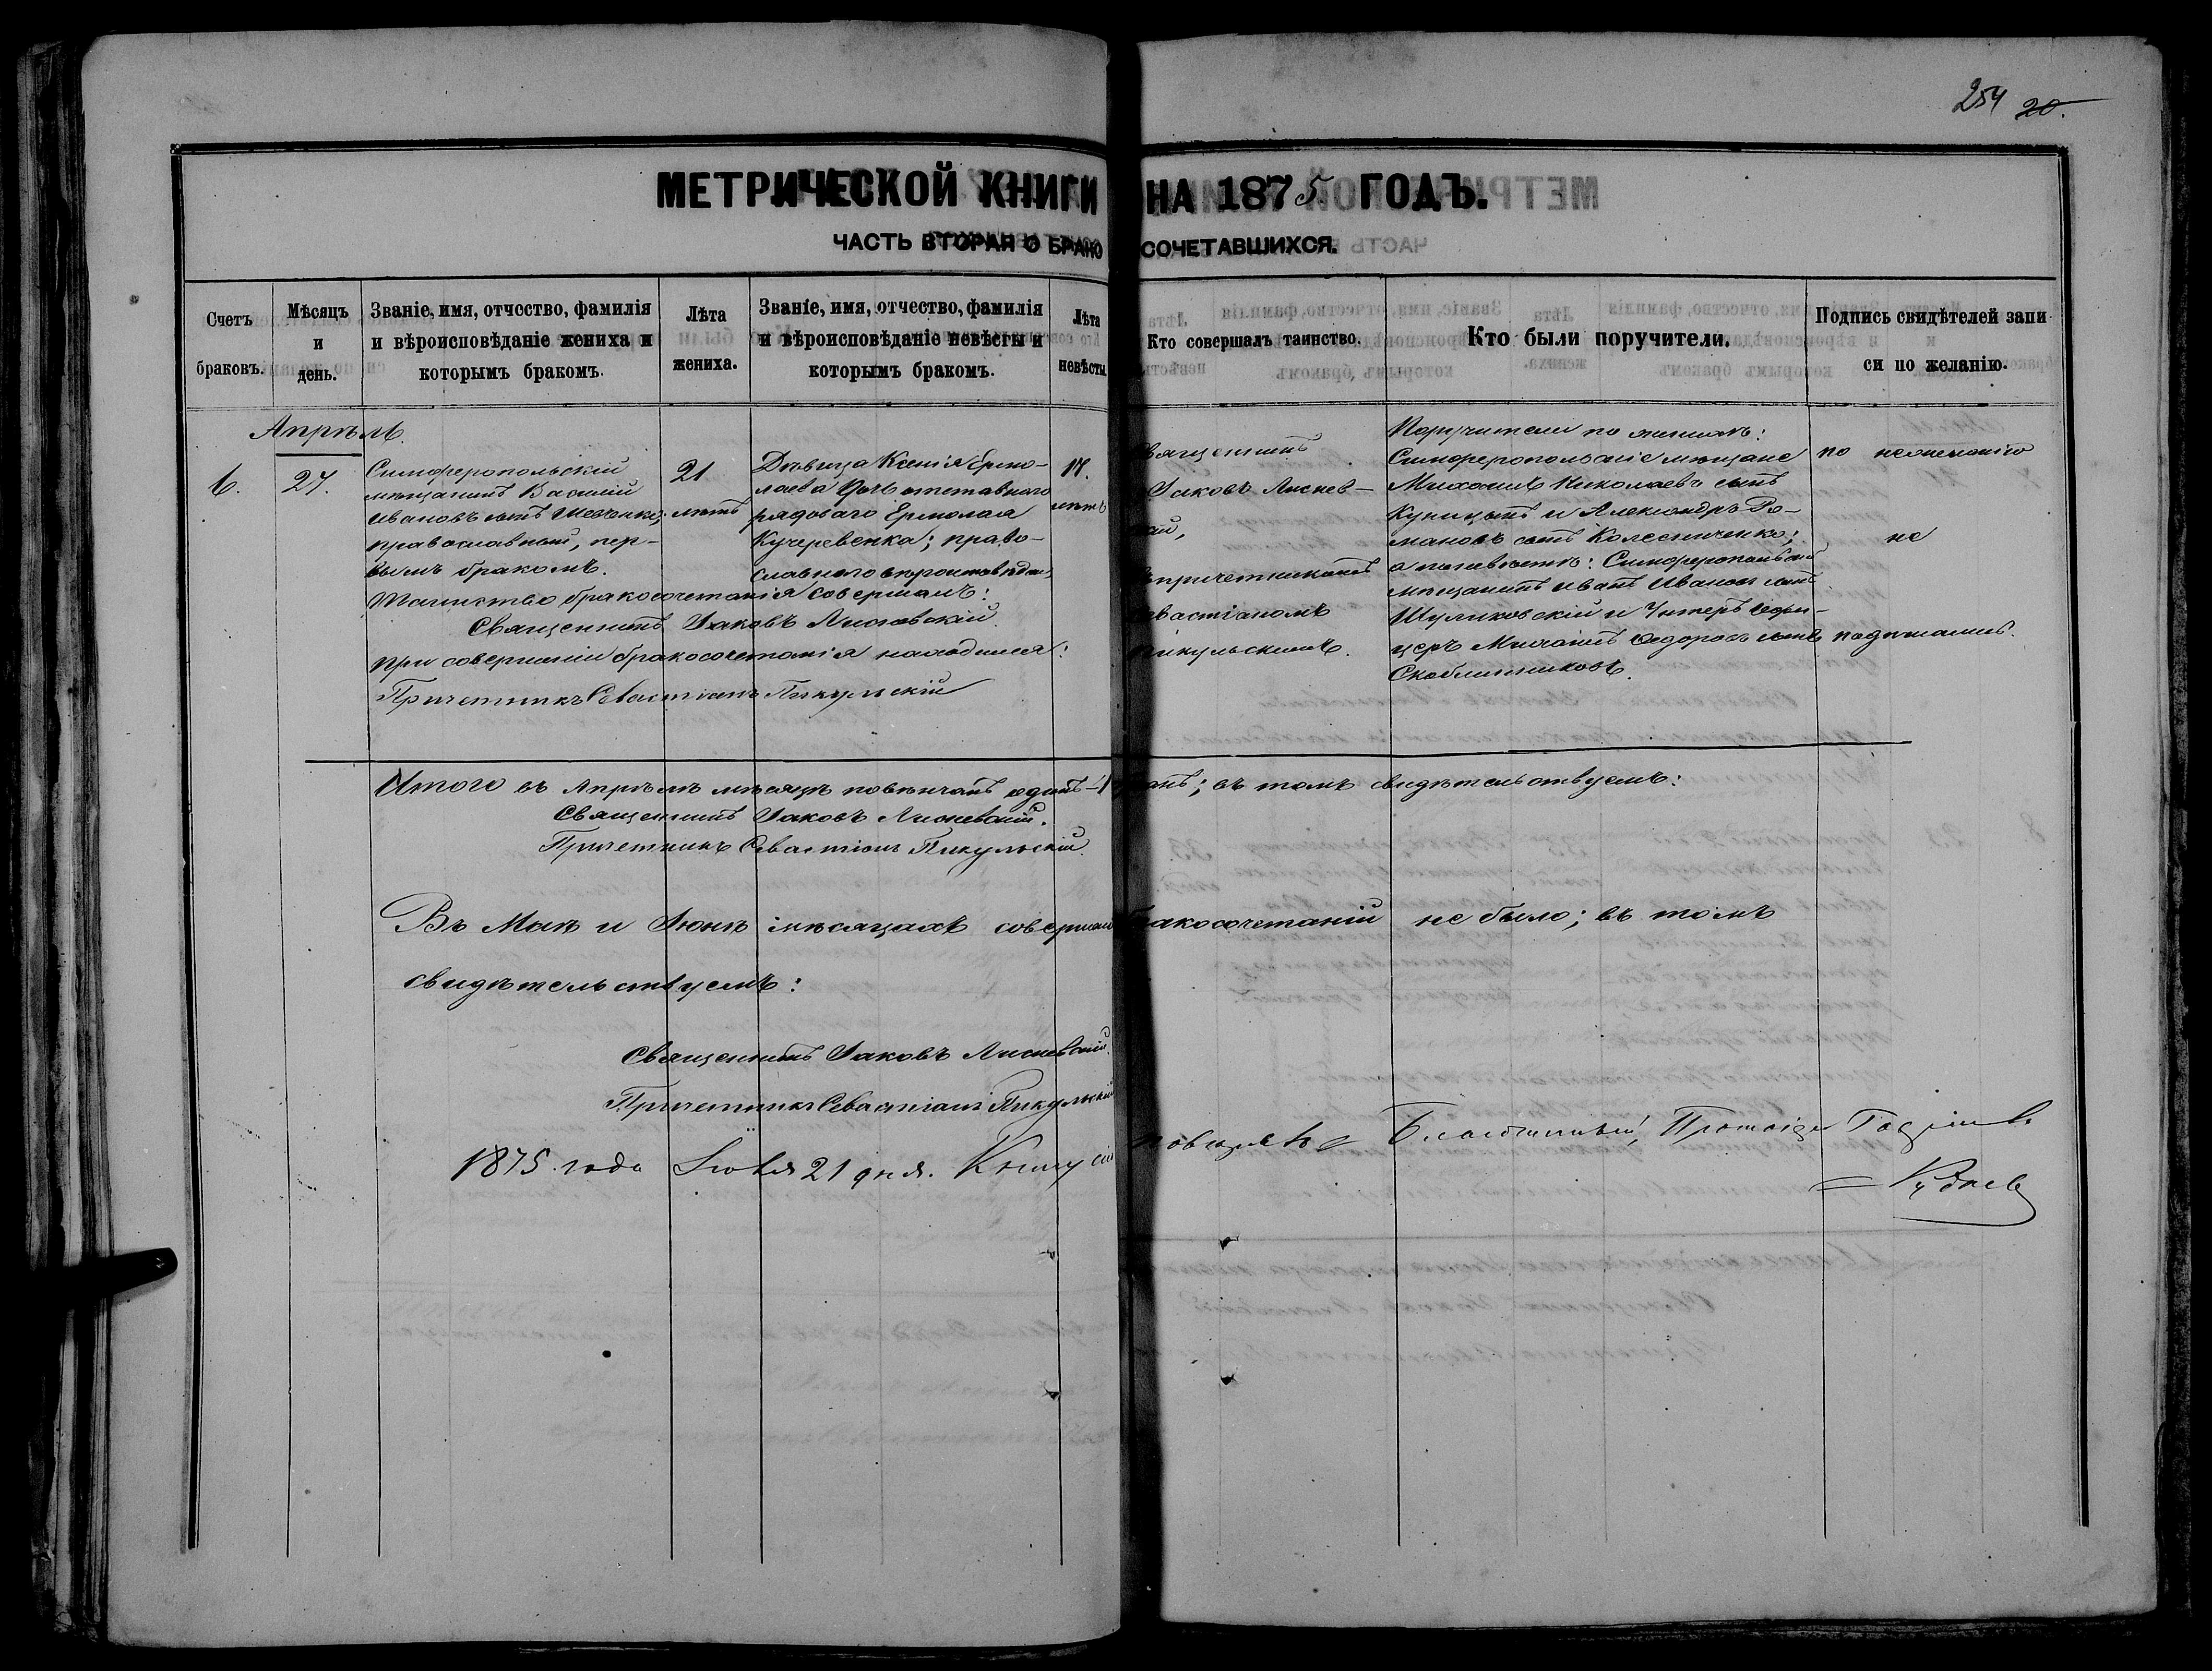 254 20.
МЕТРИЧЕСКОЙ КНИГИ НА 1875 ГОДЪ.
ЧАСТЬ ВТОРАЯ О БРАКОСОЧЕТАВШИХСЯ.
Счетъ браковъ.
Мѣсяцъ и день.
Званіе, имя, отчество, фамилія
и вѣроисповѣданіе жениха и
которымъ бракомъ.
Лѣта
жениха.
Званіе, имя, отчество, фамилія
и вѣроисповѣданіе невѣсты и
которымъ бракомъ.
Лѣта
невѣсты
Кто совершалъ таинство.
Кто были поручители.
Подпись свидѣтелей запи
си по желанію.
Апрѣль.
6.
27.
Симферопольскій
мѣщанинъ Василій
Ивановъ сынъ Шевченко;
православный, пер-
вымъ бракомъ.
21
лѣтъ
Дѣвица Ксенія Ермо-
лаева дочь отставного
рядового Ермолая
Кучеревенка; право-
славного вѣроисповѣдан.
лѣтъ
Таинство бракосочетанія совершалъ:
Священникъ Іаковъ Лисневскій.
При совершеніи бракосочетанія находился:
Причетникъ Севастіанъ Пикульскій
вященникъ
Іаковъ Лиснев-
кій,
причетникомъ
евастіаномъ
икульскимъ.
Поручители по женихѣ:
Симферопольскіе мѣщане
Михаилъ Николаевъ сынъ
Куницынъ и Александръ Ро-
мановъ сынъ Колесниченко;
а по невѣстѣ: Симферопольскій
мѣщанинъ Иванъ Ивановъ сынъ
Шуликовскій и Унтеръ офи-
церъ Михаилъ Федоровъ сынъ
Скоблинниковъ.
по незнанію
не
подписались.
Итого въ Апрѣлѣ мѣсяцѣ повѣнчанъ одинъ-1 ; въ томъ свидѣтельствуемъ:
Священникъ Іаковъ Лисневскій.
Причетникъ Севастіанъ Пикульскій.
Въ Маѣ и Іюнѣ мѣсяцахъ соверш акосочетаній не было; въ томъ
свидѣтельствуемъ:
Священникъ Іаковъ Лисневскій.
Причетникъ Севастіанъ Пикульскій
1875 года Іюля 21 дня. Книгу сію Благочинный, Протоіерей
Рудневъ